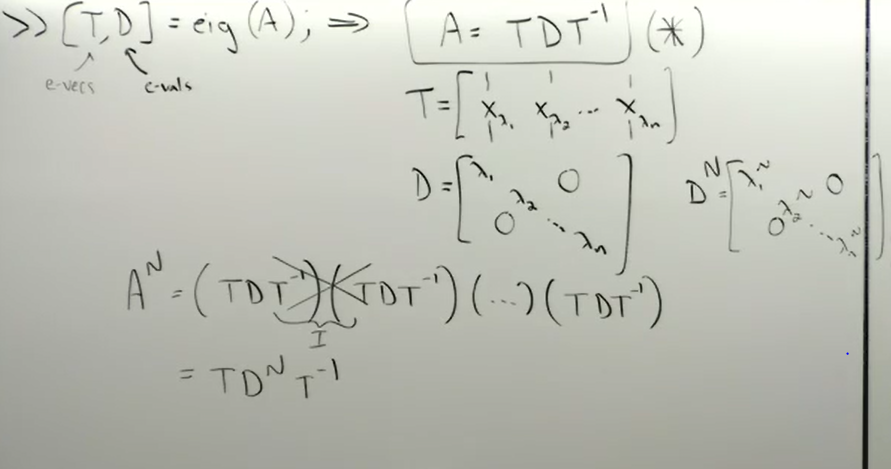 >> [T, D] = eig(A); ⇒ A = TDT⁻¹ (*)
e-vecs e-vals
T = [x_λ₁ x_λ₂ ... x_λn]
D = [λ₁ λ₂ ... λn 0 0] D^N = [λ₁^N λ₂^N ... λn^N 0 0]
A^N = (TDT⁻¹)(TDT⁻¹)(...)(TDT⁻¹)
I
= TD^N T⁻¹